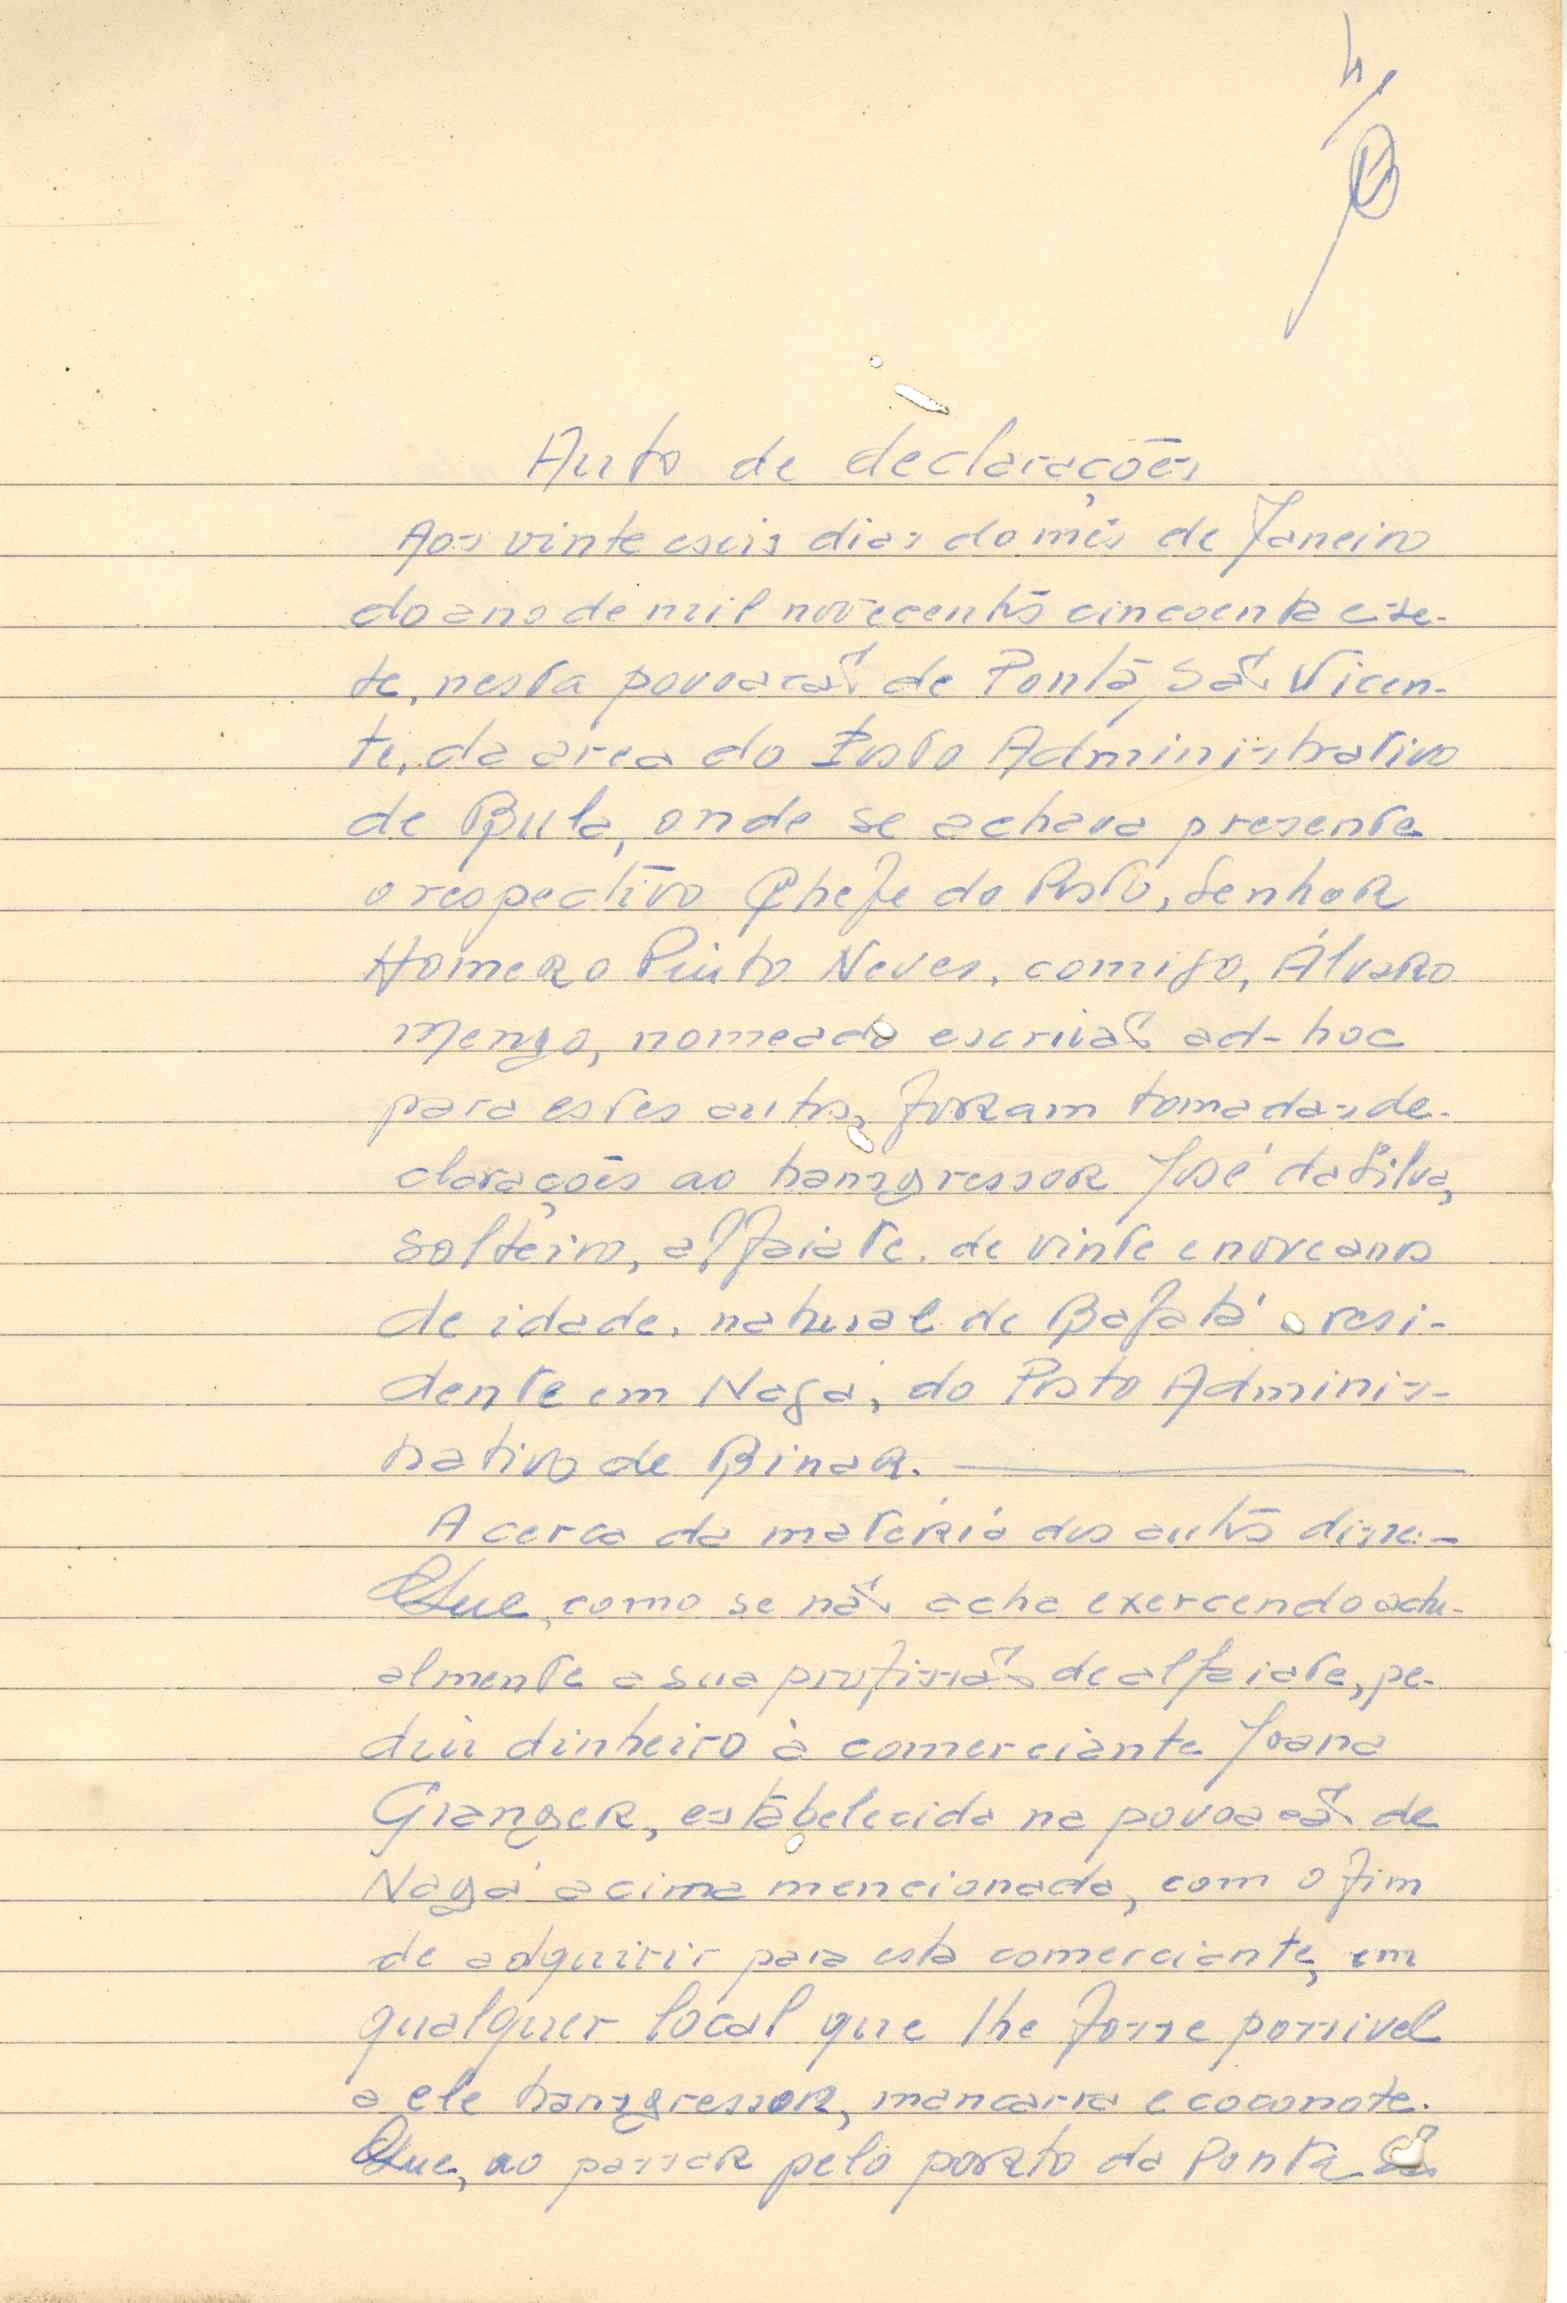 4
Auto de declarações
Aos vinte e seis dias do mês de Janeiro
do ano de mil novecentos cincoenta e se-
te, nesta povoacão de Ponta São Vicen-
te, da area do Posto Administrativo
de Bula, onde se achava presente
o respectivo Chefe do Posto, Senhor
Homero Pinto Neves, comigo, Álvaro
Mengo, nomeado escrivão ad-hoc
para estes autos, foram tomadas de-
clarações ao transgressor José da Silva,
solteiro, alfaiate, de vinte e nove anos
de idade, natural de Bafatá e resi-
dente em Nagá, do Posto Adminis-
trativo de Binar.
A cerca da matéria dos autos disse:-
Que, como se não acha exercendo actu-
almente a sua profissão de alfaiate, pe-
diu dinheiro à comerciante Joana
Granger, estabelecida na povoacão de
Nagá acima mencionada, com o fim
de adquirir para esta comerciante, em
qualquer local que lhe fosse possivel
a ele transgressor, mancarra e coconote.
Que, ao passar pelo porto da Ponta São